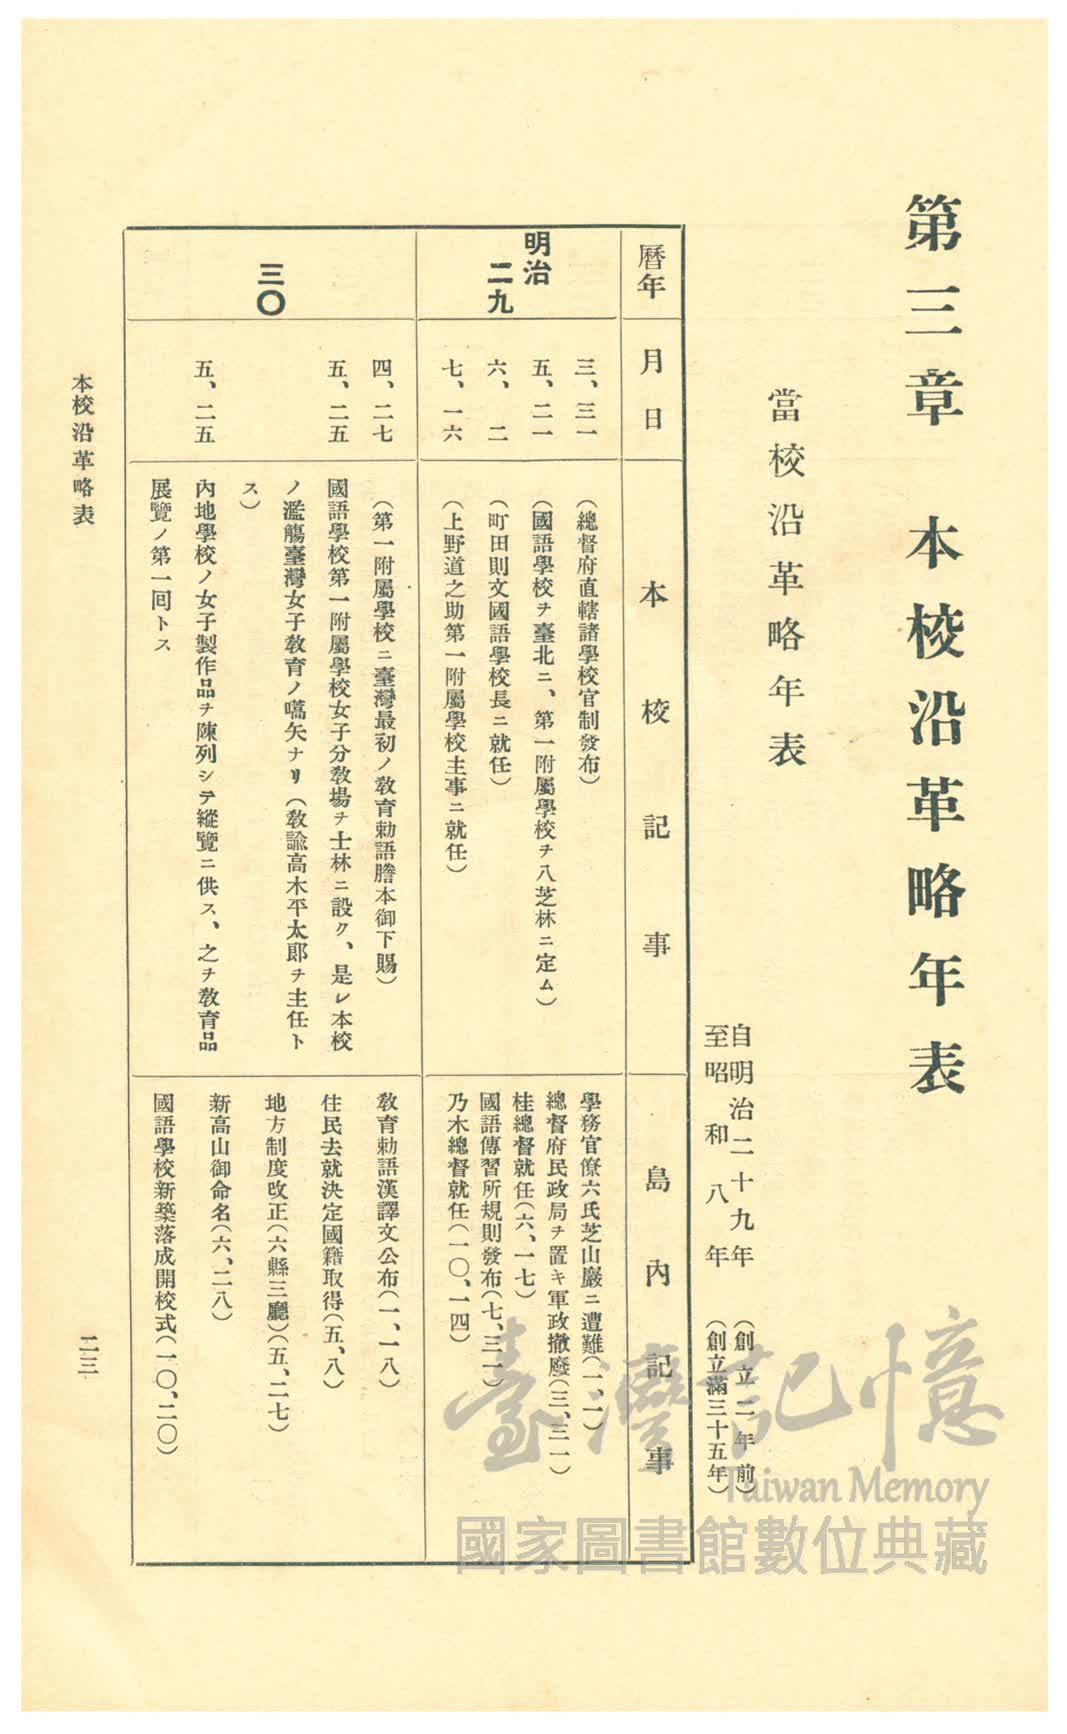 第三章　本校沿革略年表
當校沿革略年表
自明治二十九年（創立二年前）
至昭和八年（創立滿三十五年）
曆年
月日
本校記事
島內記事
明治
二九
三、三一
（總督府直轄諸學校官制發布）
五、二一
（國語學校ヲ臺北ニ、第一附屬學校ヲ八芝林ニ定ム）
六、二
（町田則文國語學校長ニ就任）
七、一六
（上野道之助第一附屬學校主事ニ就任）
學務官僚六氏芝山巖ニ遭難（一、一）
總督府民政局ヲ置キ軍政撤廢（三、三一）
桂總督就任（六、一七）
國語傳習所規則發布（七、三一）
乃木總督就任（一〇、一四）
三〇
四、二七
（第一附屬學校ニ臺灣最初ノ敎育勅語謄本御下賜）
五、二五
國語學校第一附屬學校女子分敎場ヲ士林ニ設ク、是レ本校
ノ濫觴臺灣女子敎育ノ嚆矢ナリ（敎諭高木平太郎ヲ主任ト
ス）
五、二五
內地學校ノ女子製作品ヲ陳列シテ縱覽ニ供ス、之ヲ敎育品
展覽ノ第一回トス
敎育勅語漢譯文公布（一、一八）
住民去就決定國籍取得（五、八）
地方制度改正（六縣三廳）（五、二七）
新高山御命名（六、二八）
國語學校新築落成開校式（一〇、二〇）
本校沿革略表
二三
臺灣記憶
Taiwan Memory
國家圖書館數位典藏